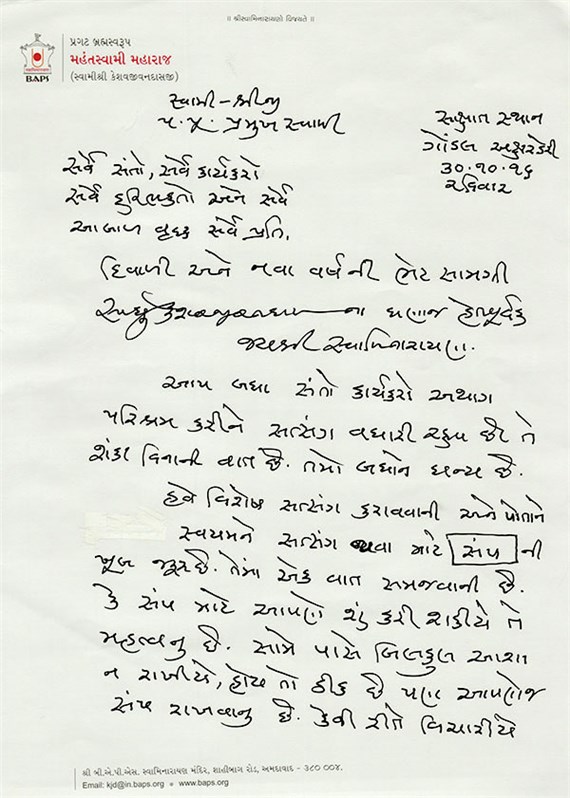 ॥ શ્રીસ્વામિનારાયણો વિજયતે ॥
પ્રગટ બ્રહ્મસ્વરૂપ
મહંતસ્વામી મહારાજ
(સ્વામીશ્રી કેશવજીવનદાસજી)
BAPS
સ્વામી-શ્રીજી
પ.પૂ. પ્રમુખ સ્વામી
સાક્ષાત સ્થાન
ગોંડલ અક્ષરદેરી
૩૦.૧૦.૧૬
રવિવાર
સર્વે સંતો, સર્વે કાર્યકરો
સર્વે હરિભક્તો અને સર્વે
આબાળ વૃધ્ધ સર્વે પ્રતિ,
દિવાળી અને નવા વર્ષની ભેટ સામગ્રી
સાધુ કેશવજીવનદાસ ના ઘણાજ હેતપૂર્વક
જયશ્રી સ્વામિનારાયણ.
આપ બધા સંતો કાર્યકરો અથાગ
પરિશ્રમ કરીને સત્સંગ વધારી રહ્યા છો તે
શંકા વિનાની વાત છે. તમો બધાને ધન્ય છે.
હવે વિશેષ સત્સંગ કરાવવાની અને પોતાને
સ્વયમને સત્સંગ થવા માટે સંપ ની
ખૂબ જરૂર છે. તેમાં એક વાત સમજવાની છે.
કે સંપ માટે આપણે શું કરી શકીયે તે
મહત્વનુ છે. સામે પાસે બિલકુલ આશા
ન રાખીયે, હોય તો ઠીક છે પણ આપણેજ
સંપ રાખવાનુ છે. કેવી રીતે વિચારીયે
શ્રી બી.એ.પી.એસ. સ્વામિનારાયણ મંદિર, શાહીબાગ રોડ, અમદાવાદ - ૩૮૦ ૦૦૪.
Email: kjd@in.baps.org • www.baps.org